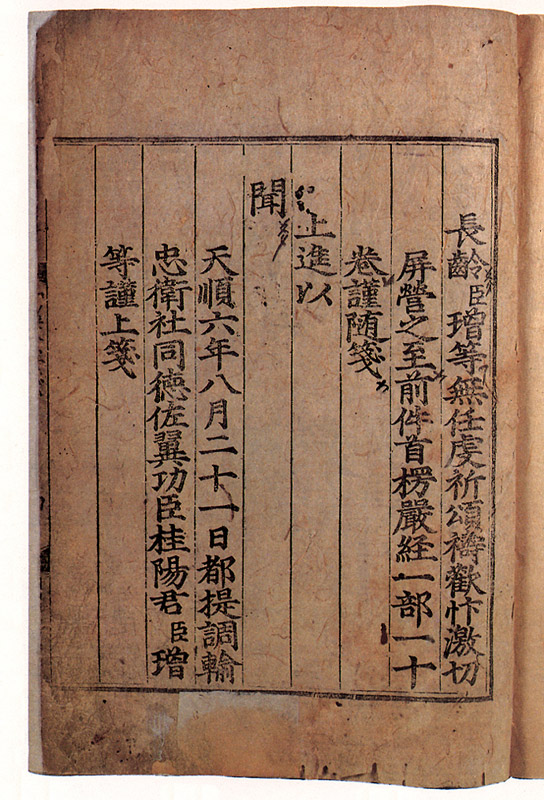 長齡臣璔等無任虔祈頌禱歡忭激切
屏營之至前件首楞嚴経一部一十
卷謹随箋
上進以
聞
天順六年八月二十一日都提調輸
忠衛社同德佐翼功臣桂陽君臣璔
等謹上箋